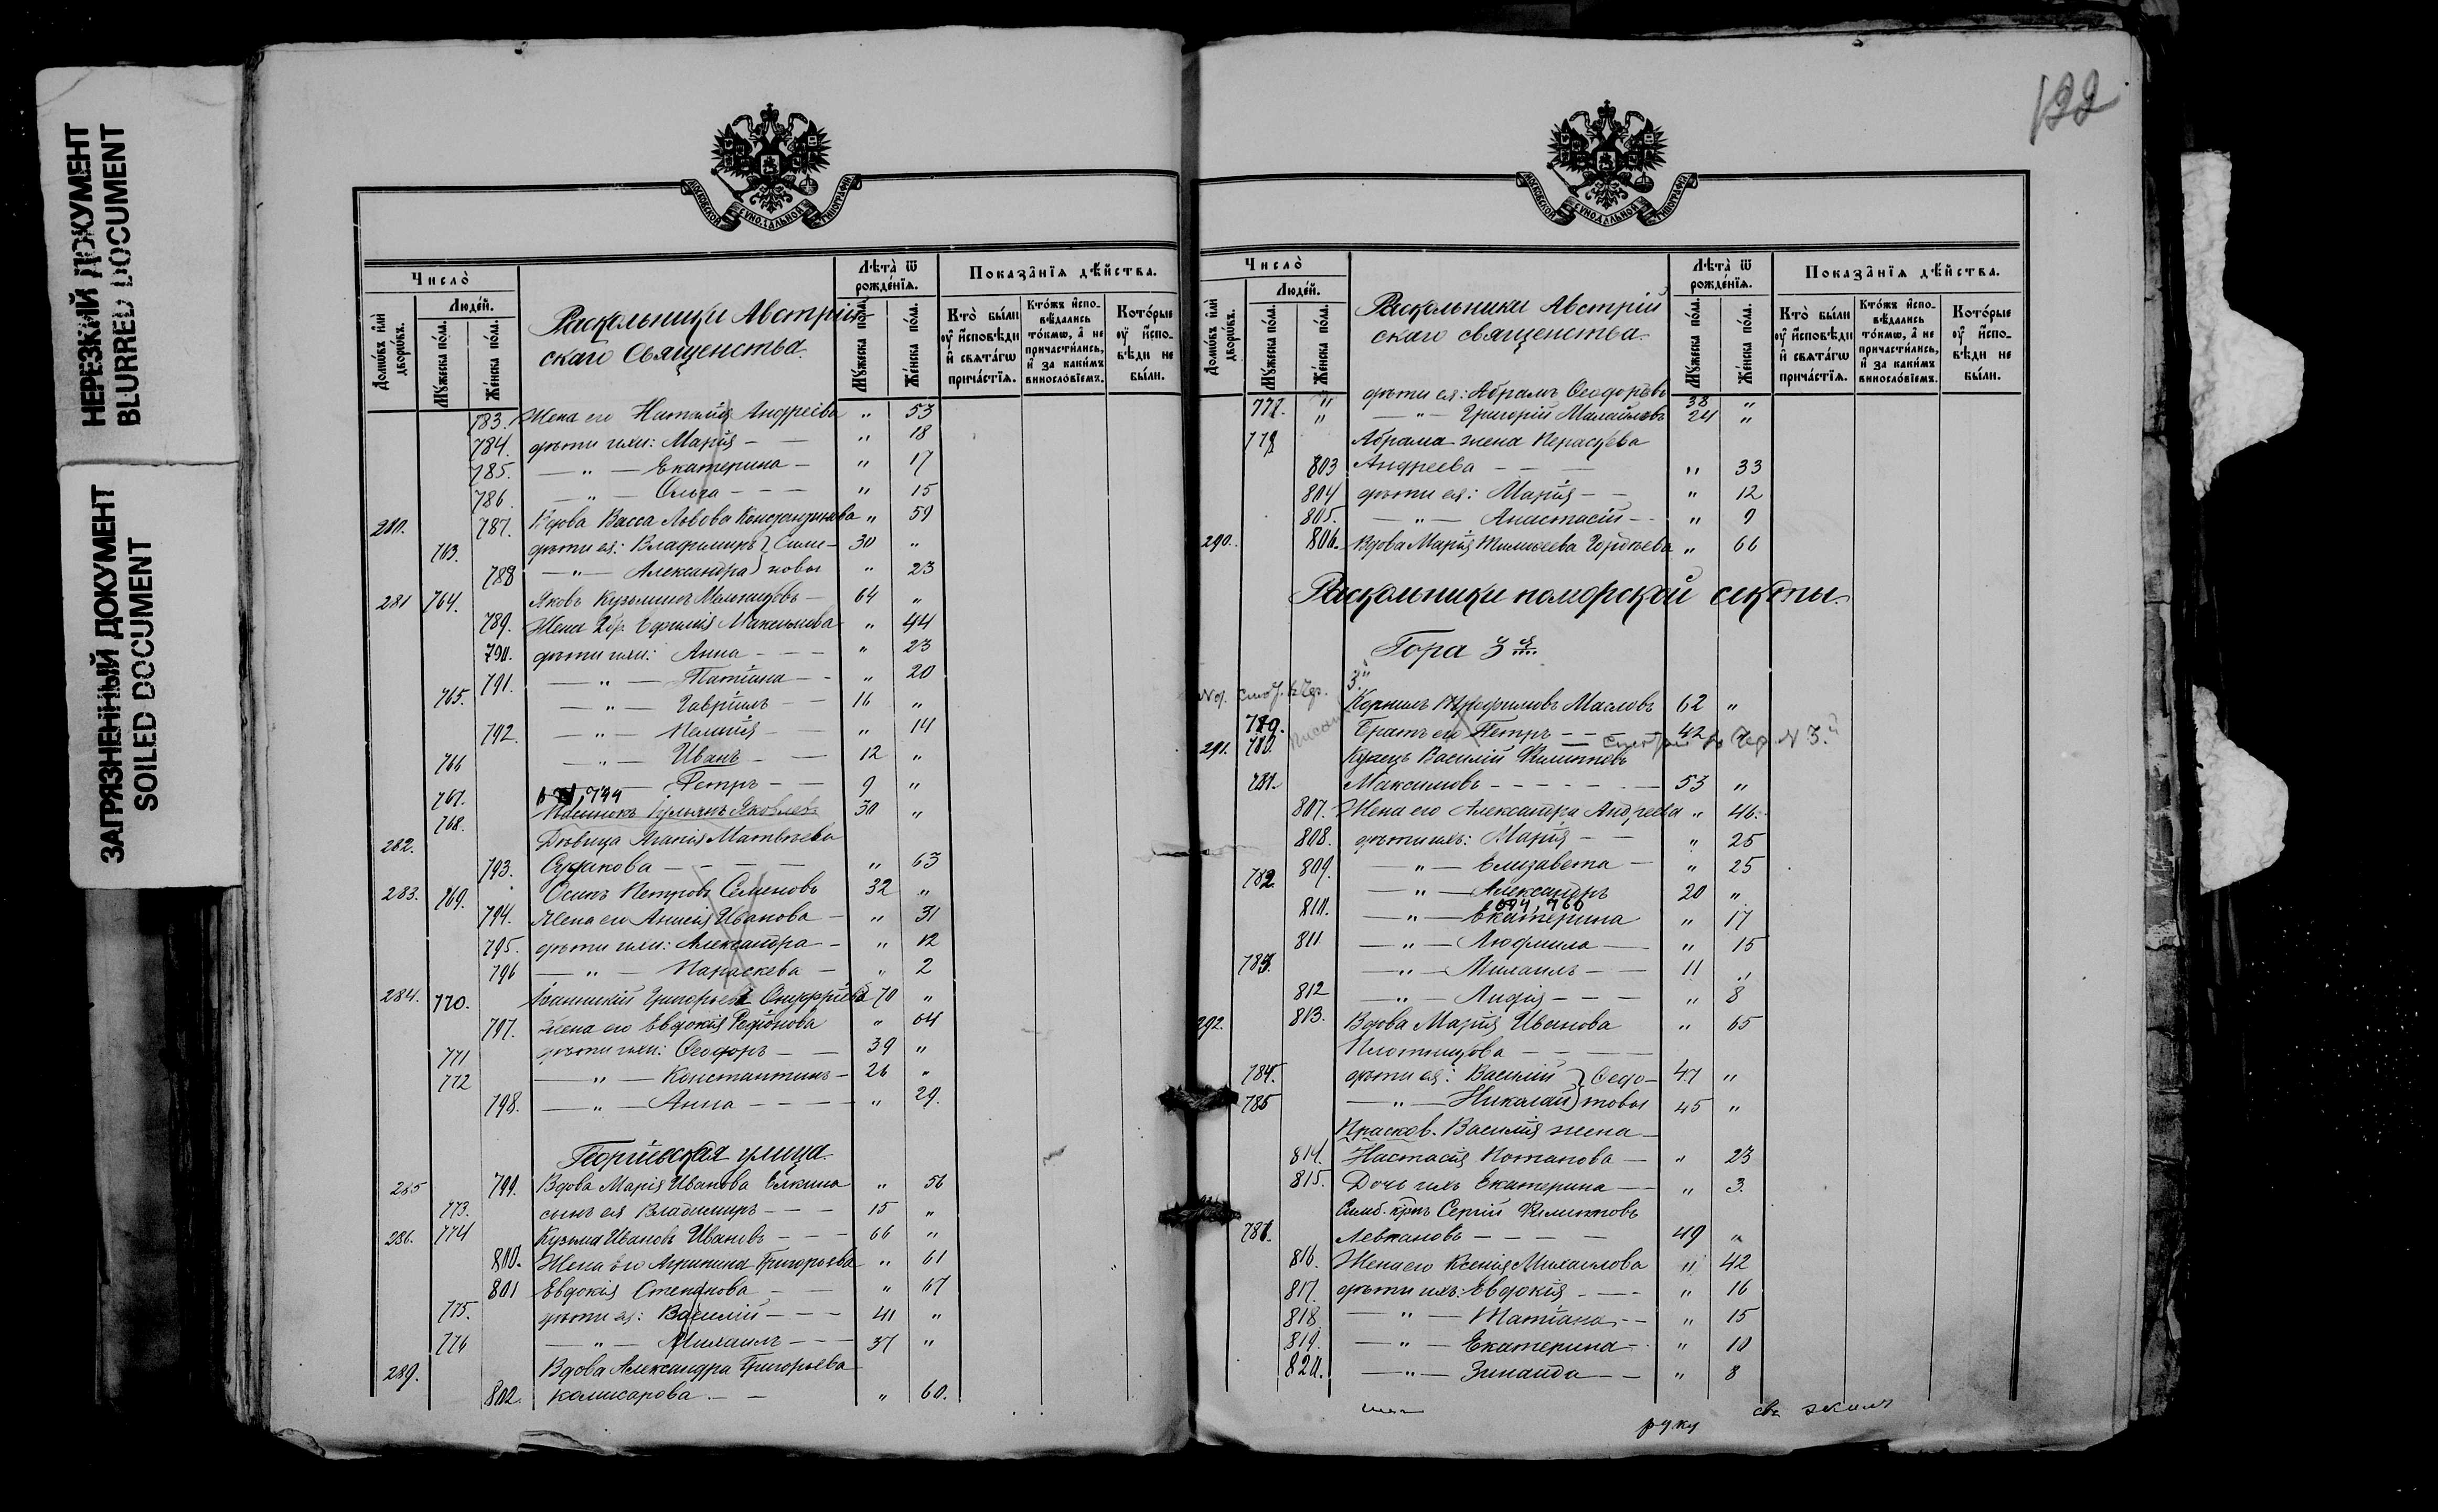 НЕРЕЗКИЙ ДОКУМЕНТ
BLURRED DOCUMENT
ЗАГРЯЗНЕННЫЙ ДОКУМЕНТ
SOILED DOCUMENT
МОСКОВСКОЙ СѴНОДАЛЬНОЙ ТИПОГРАФІИ
Число̀
Людей.
Домѡвъ или дворѡвъ.
Мꙋжеска пола.
Женска пола.
Раскольники Австрій-
скаго Священства.
Лѣта ѿ рожденїѧ.
Мꙋжеска пола.
Женска пола.
Показанїѧ дѣйства.
Кто были оу исповѣди и свѧтагѡ причастїѧ.
Ктожъ исповѣдались токмѡ, а не причастились, и за какимъ винословїемъ.
Которые оу исповѣди не были.
783. Жена его Наталія Андреева " 53
784. дѣти ихъ: Марія — — " 18
785. — " — Екатерина — " 17
786. — " — Ольга — — — " 15
280. 787. Вдова Васса Львова " 59
763. дѣти ея: Владимиръ } Симо- 30 "
788 — " — Александра } новы " 23
281 764. Яковъ Кузьминъ 64 "
789. Жена Максимова " 44
790. дѣти ихъ: Анна — — — " 23
791. — " — Татіана — — " 20
765. — " — Гавріилъ — — 16 "
792. — " — Пелагія — — " 14
766 — " — Иванъ — — 12 "
767. — Петръ — — 9 "
768. 30 "
282. Дѣвица Агапія Матвѣева
793. Судакова — — — " 63
283. 769. Осипъ Петровъ Семеновъ 32 "
794. Жена его Анисія Иванова — " 31
795. дѣти ихъ: Александра — " 12
796 — " — Параскева — " 2
284. 770. Іоанникій Григорьевъ 70 "
797. жена его Евдокія Родіонова " 64
771 дѣти ихъ: Ѳеодоръ — — 39 "
772 — " — Константинъ — 26 "
798. — " — Анна — — — — " 29.
Георгіевская улица.
285 799. Вдова Марія Иванова Елкина " 56
773. сынъ ея Владимиръ — — — 15 "
286. 774 Кузьма Ивановъ Ивановъ — — — 66 "
800. Жена его Агрипина Григорьева " 61
801 Евдокія Степанова — — " 67
775. дѣти ея: Василій — — — 41 "
776 — " — Михаилъ — — — 37 "
289. Вдова Александра Григорьева
802. Комисарова — — " 60.
122
МОСКОВСКОЙ СѴНОДАЛЬНОЙ ТИПОГРАФІИ
Число̀
Людей.
Домѡвъ или дворѡвъ.
Мꙋжеска пола.
Женска пола.
Раскольники Австрій
скаго священства.
Лѣта ѿ рожденїѧ.
Мꙋжеска пола.
Женска пола.
Показанїѧ дѣйства.
Кто были оу исповѣди и свѧтагѡ причастїѧ.
Ктожъ исповѣдались токмѡ, а не причастились, и за какимъ винословїемъ.
Которые оу исповѣди не были.
777. " дѣти ея: Абрамъ Ѳеодоровъ 38 "
" — " — Григорій Михайловъ 24 "
778 Абрама жена
803 Андреева — — — " 33
804 дѣти ея: Марія — — " 12
805. — " — Анастасія — — " 9
290. 806. Вдова Марія Тимоѳеева " 66
Раскольники поморской секты.
Гора 3я.
Маслов 62 "
779. Братъ его Петръ — — — 42
291. 780. Купецъ Василій Филипповъ
781. Максимовъ — — — — — — 53 "
807. Жена его Александра Андреева " 46.
808. дѣти ихъ: Марія — — " 25
809. — " — Елизавета — " 25
782 — " — Александръ 20 "
694, 760
810. — " — Екатерина " 17
811 — " — Людмила — " 15
783. — " — Михаилъ — — 11 "
812 — " — Лидія — — — " 8
292. 813. Вдова Марія Иванова " 65
Плотникова — — — —
784. дѣти ея: Василій } Ѳедо- 47 "
785 — " — Николай } товы 45 "
Василія жена —
814. Настасія Потапова — " 23
815. Дочь ихъ Екатерина — — " 3.
Симб. Сергій Филипповъ
786. — — — — 49 "
816. Жена его Ксенія Михайлова " 42
817. дѣти ихъ: Евдокія — — — " 16
818 — " — Татіана — — " 15
819. — " — Екатерина — " 10
820. — " — Зинаида — — " 8
руку